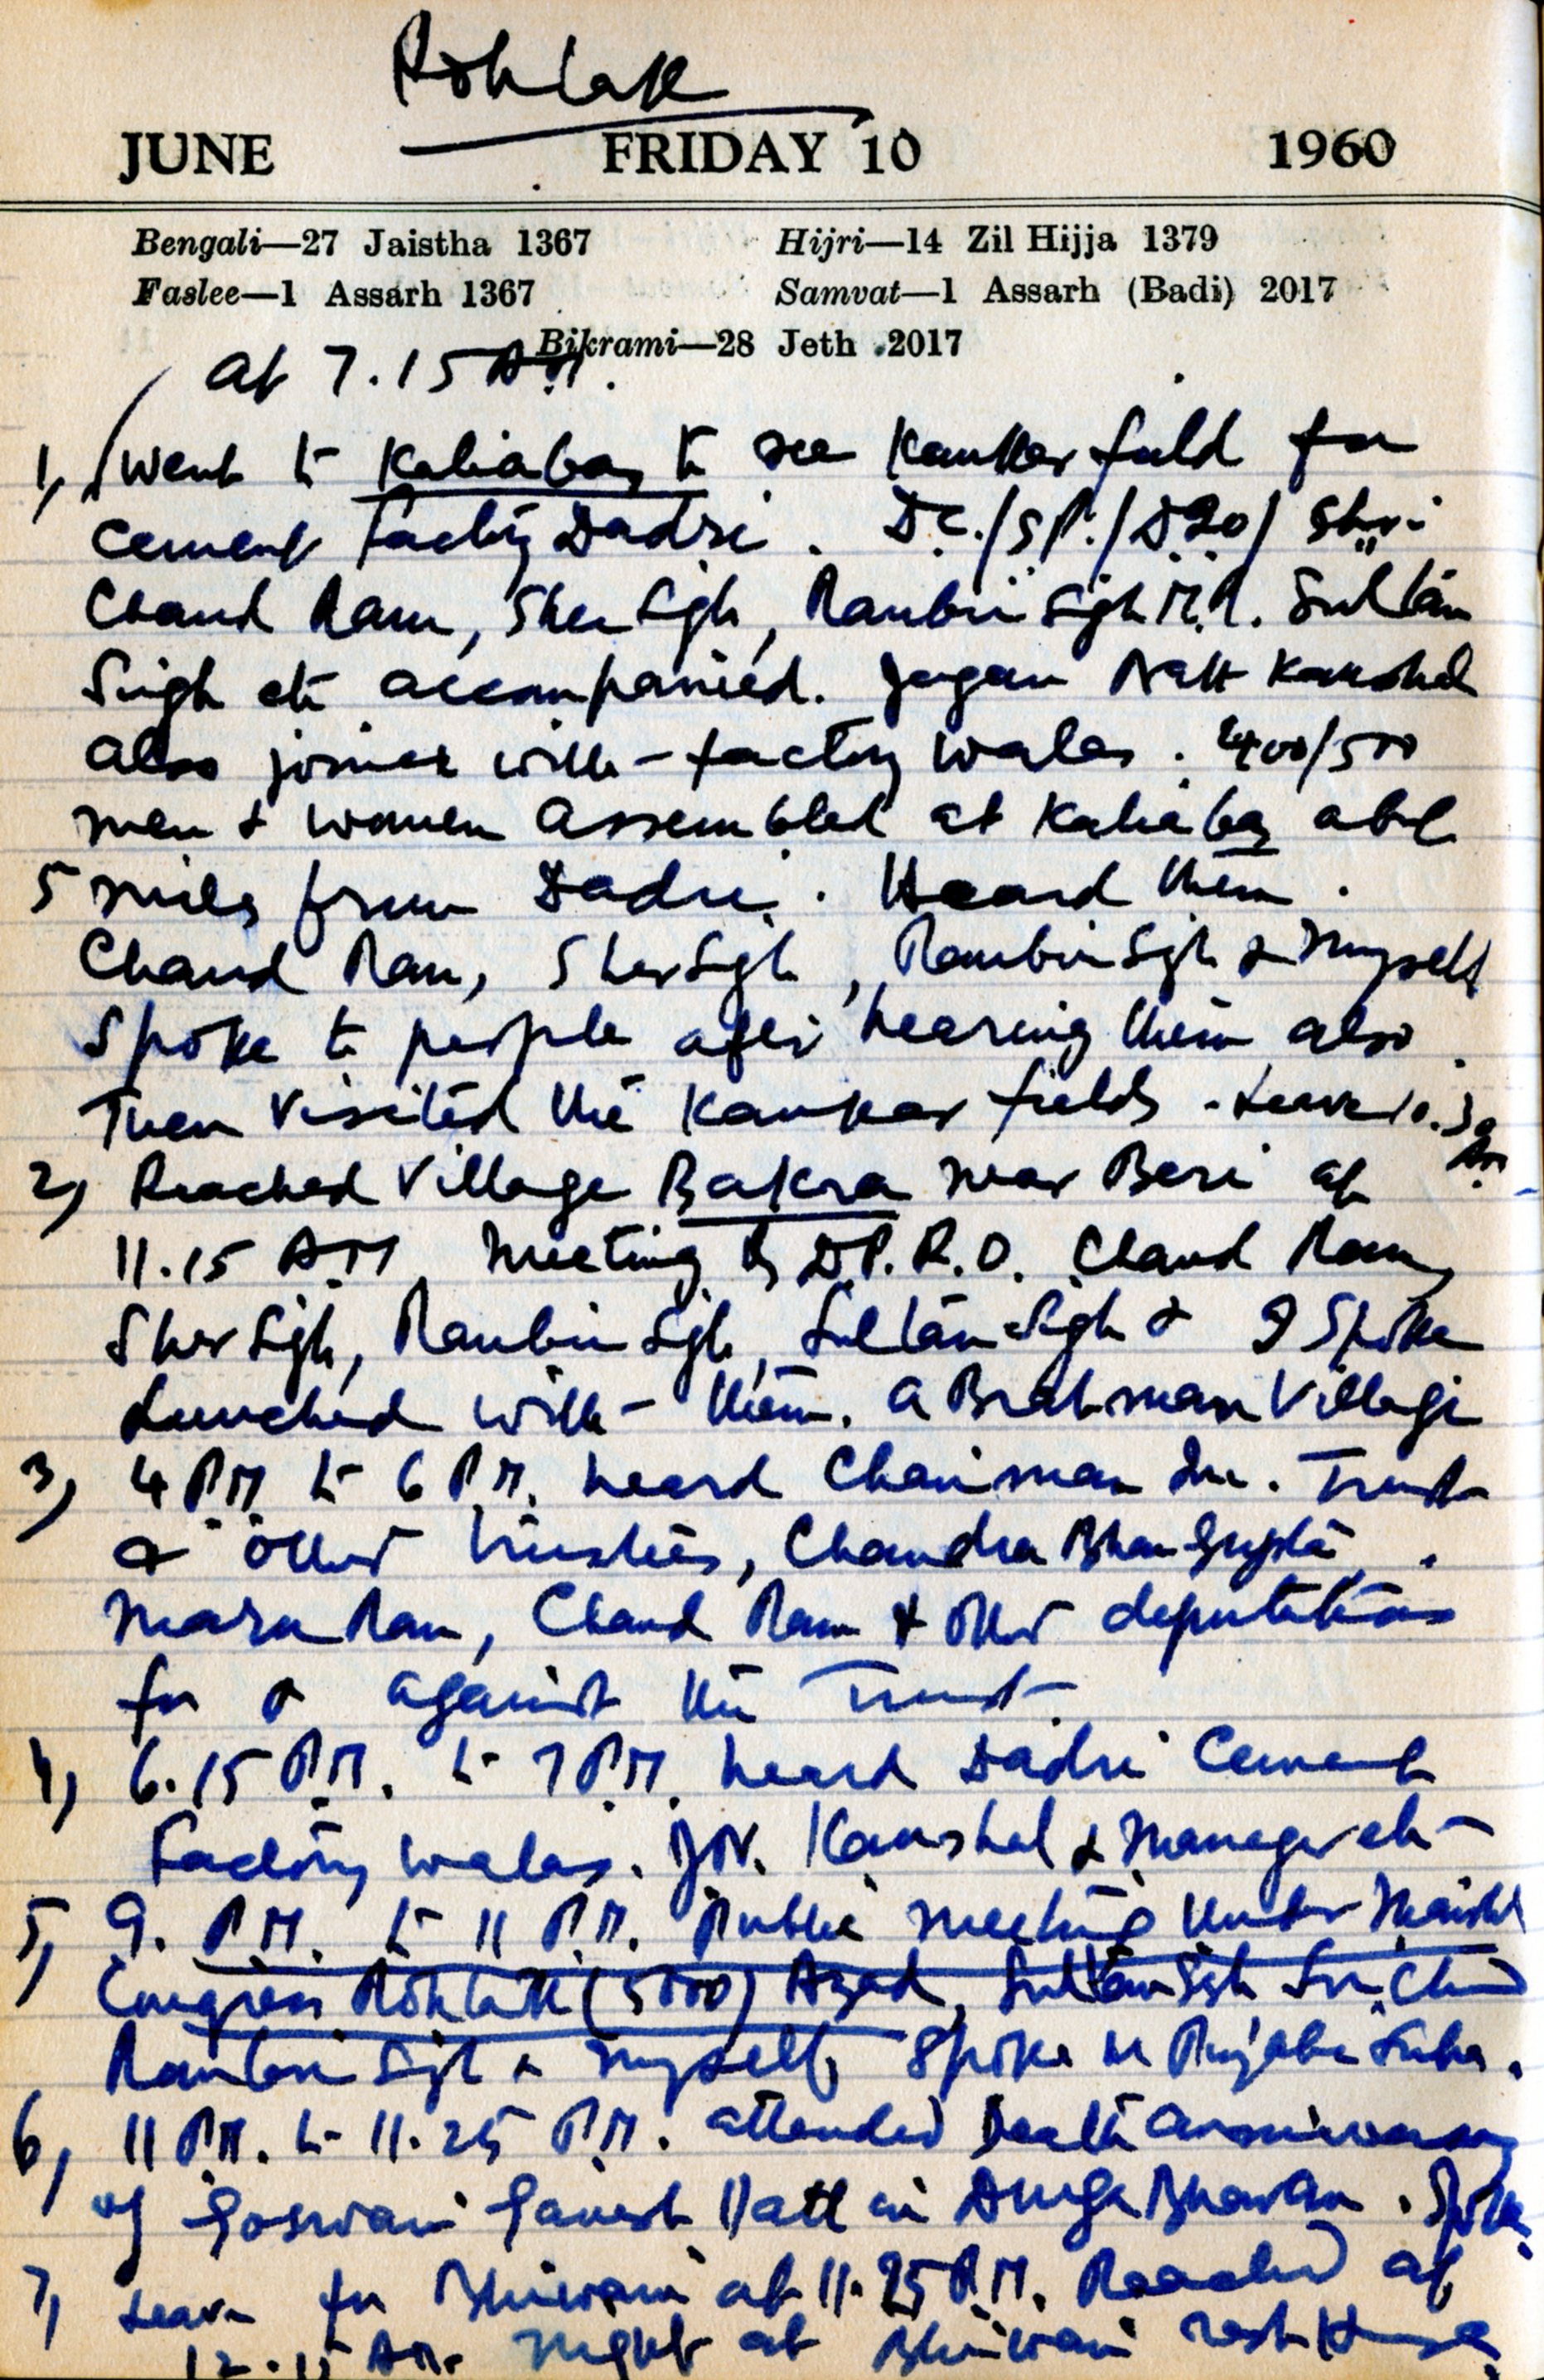 Rohtak
JUNE FRIDAY 10 1960
Bengali—27 Jaistha 1367 Hijri—14 Zil Hijja 1379
Faslee—1 Assarh 1367 Samvat—1 Assarh (Badi) 2017
Bikrami—28 Jeth 2017
at 7.15 A.M.
1, Went to Kaliabas to see Kankar field for
Cement Factory Dadri. D.C./S.P./ Shri
Chand Ram, Sher Sigh, Ranbir Sigh M.P. Sultan
Singh etc accompanied. Jagan Nath Kaushal
also joined with factory walas. 400/500
men & women assembled at Kaliabas abt
5 miles from Dadri. Heard them.
Chand Ram, Sher Sigh, Ranbir Sigh & myself
spoke to people after hearing them also.
Then visited the Kankar fields. Leave 10.30
A.M.
2, Reached Village Bakra near Beri at
11.15 AM Meeting by D.P.R.O. Chand Ram,
Sher Sigh, Ranbir Sigh, Sultan Sigh & I Spoke
Lunched with them. a Brahman Village
3, 4 P.M. to 6 P.M. heard Chairman Im. Trust
& other trustees, Chandra Bhan Gupta,
Ram, Chand Ram & other deputations
for & against the Trust.
4, 6.15 P.M. to 7 P.M. heard Dadri Cement
Factory walas. J.N. Kaushal & Manager etc
5, 9. P.M. to 11 P.M. Public meeting under
Congress Rohtak (5000) Azad, Sultan Sigh
Ranbir Sigh & myself spoke on Punjabi Suba.
6, 11 P.M. to 11.25 P.M. attended Death anniversary
of Goswami Ganesh Datt in Durga Bhawan. Spoke.
7, Leave for Bhiwani at 11.25 P.M. Reached at
12.15 A.M. night at Bhiwani rest House